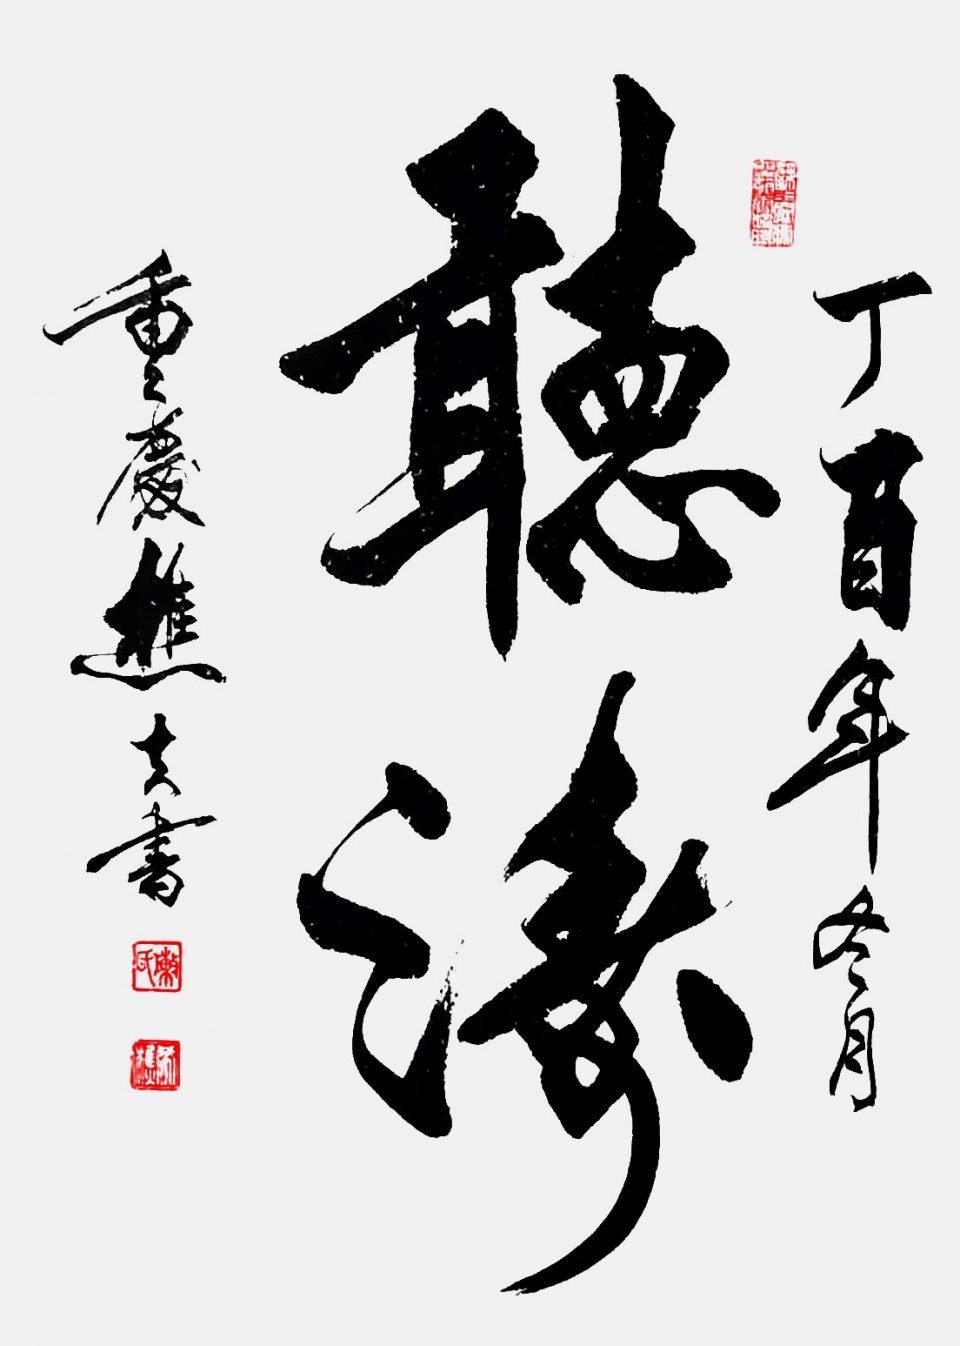 丁酉年冬月
聽濤
重慶樵夫書